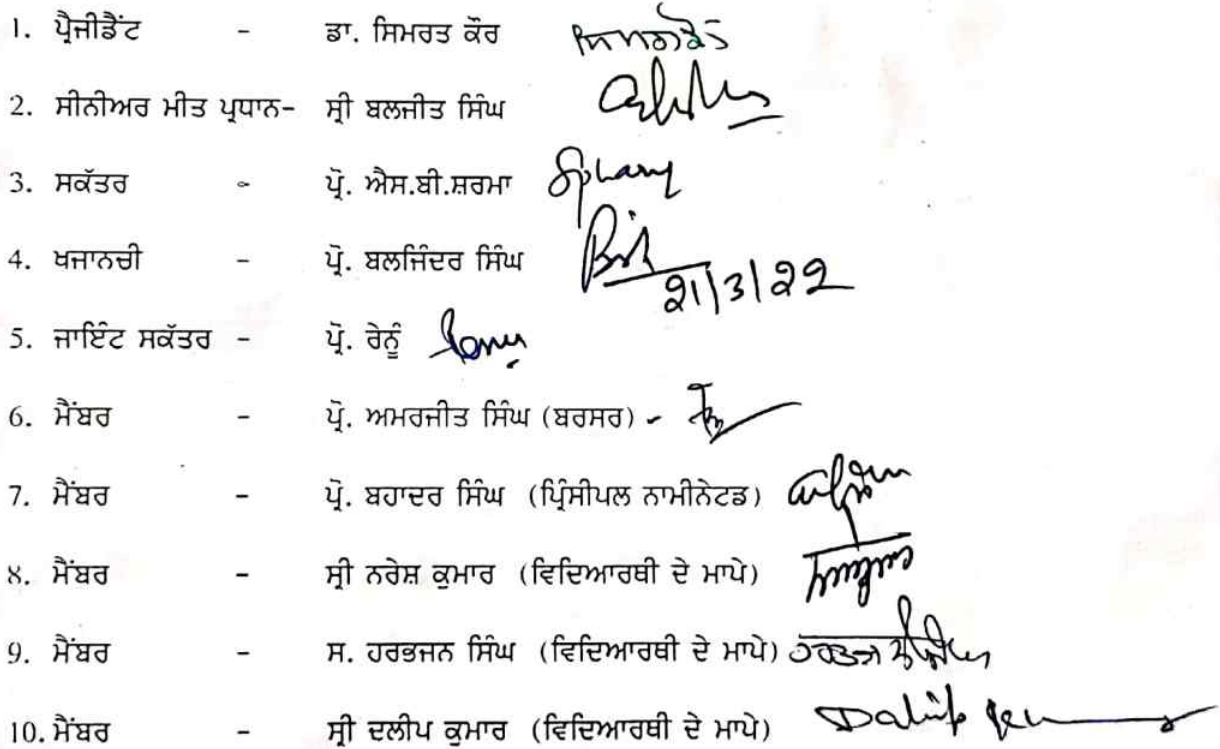 1. ਪ੍ਰੈਜੀਡੈਂਟ - ਡਾ. ਸਿਮਰਤ ਕੌਰ
2. ਸੀਨੀਅਰ ਮੀਤ ਪ੍ਰਧਾਨ- ਸ੍ਰੀ ਬਲਜੀਤ ਸਿੰਘ
3. ਸਕੱਤਰ - ਪ੍ਰੋ. ਐਸ.ਬੀ.ਸ਼ਰਮਾ
4. ਖਜਾਨਚੀ - ਪ੍ਰੋ. ਬਲਜਿੰਦਰ ਸਿੰਘ
21/3/22
5. ਜਾਇੰਟ ਸਕੱਤਰ - ਪ੍ਰੋ. ਰੇਨੂੰ
6. ਮੈਂਬਰ - ਪ੍ਰੋ. ਅਮਰਜੀਤ ਸਿੰਘ (ਬਰਸਰ) -
7. ਮੈਂਬਰ - ਪ੍ਰੋ. ਬਹਾਦਰ ਸਿੰਘ (ਪ੍ਰਿੰਸੀਪਲ ਨਾਮੀਨੇਟਡ)
8. ਮੈਂਬਰ - ਸ੍ਰੀ ਨਰੇਸ਼ ਕੁਮਾਰ (ਵਿਦਿਆਰਥੀ ਦੇ ਮਾਪੇ)
9. ਮੈਂਬਰ - ਸ. ਹਰਭਜਨ ਸਿੰਘ (ਵਿਦਿਆਰਥੀ ਦੇ ਮਾਪੇ)
10. ਮੈਂਬਰ - ਸ੍ਰੀ ਦਲੀਪ ਕੁਮਾਰ (ਵਿਦਿਆਰਥੀ ਦੇ ਮਾਪੇ) Dalip